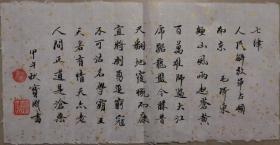 七律
人民解放軍占領
南京 毛澤東
鐘山風雨起蒼黄
百萬雄師過大江
虎踞龍盤今勝昔
天翻地覆慨而慷
宜將剩勇追窮寇
不可沽名學霸王
天若有情天亦老
人間正道是滄桑
甲午秋 寶 書